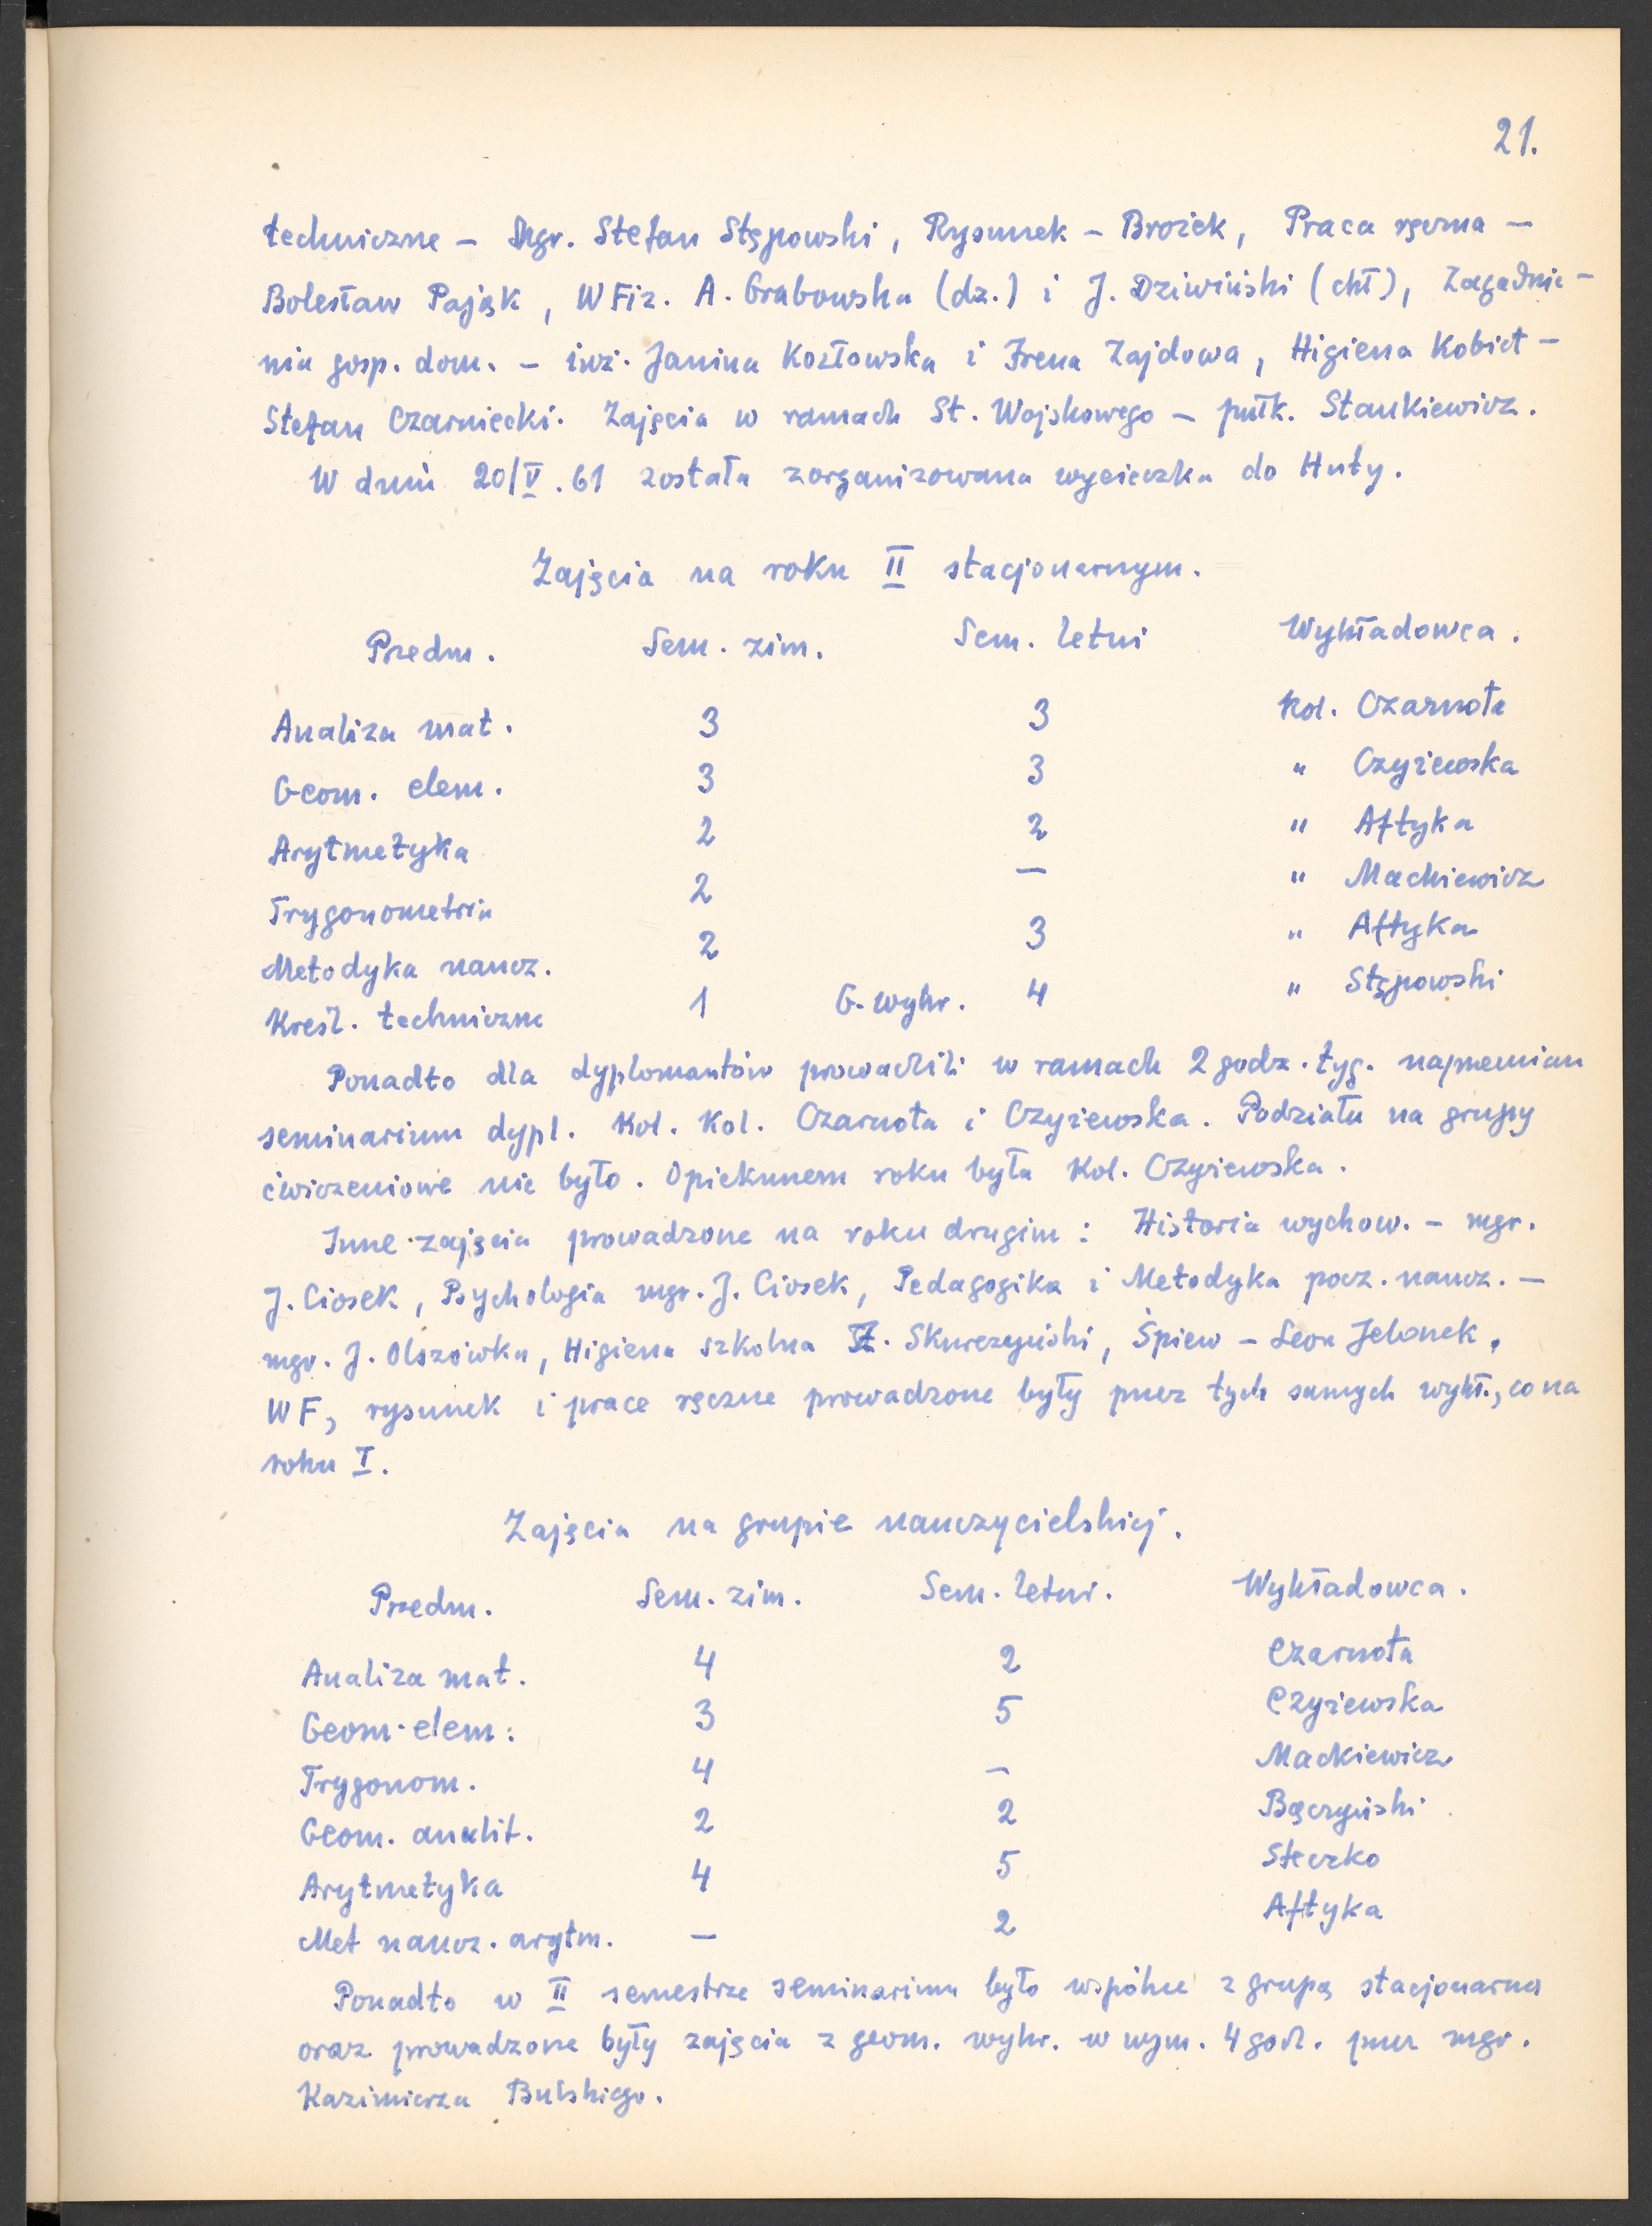 21.
techniczne – Mgr. Stefan Stępowski, Rysunek – Brożek, Praca ręczna –
Bolesław Pająk, WFiz. A. Grabowska (dz.) i J. Dziwiński (chł), Zagadnie-
nia gosp. dom. – inż. Janina Kozłowska i Irena Zajdowa, Higiena Kobiet –
Stefan Czarniecki. Zajęcia w ramach St. Wojskowego – płk. Stankiewicz.
W dniu 20/V.61 została zorganizowana wycieczka do Huty.
Zajęcia na roku II stacjonarnym.
Przedm. Sem. zim. Sem. letni Wykładowca.
Analiza mat. 3 3 Kol. Czarnota
Geom. elem. 3 3 " Czyżewska
Arytmetyka 2 2 " Aftyka
Trygonometria 2 — " Mackiewicz
Metodyka naucz. 2 3 " Aftyka
Kreśl. techniczne 1 G. wykr. 4 " Stępowski
Ponadto dla dyplomantów prowadzili w ramach 2 godz. tyg. naprzemian
seminarium dypl. Kol. Kol. Czarnota i Czyżewska. Podziału na grupy
ćwiczeniowe nie było. Opiekunem roku była Kol. Czyżewska.
Inne zajęcia prowadzone na roku drugim: Historia wychow. – mgr.
J. Ciosek, Psychologia mgr. J. Ciosek, Pedagogika i Metodyka pocz. naucz. –
mgr. J. Olszówka, Higiena szkolna Skurczyński, Śpiew – Leon Jelonek.
WF, rysunek i prace ręczne prowadzone były przez tych samych wykł., co na
roku I.
Zajęcia na grupie nauczycielskiej.
Przedm. Sem. zim. Sem. letni. Wykładowca.
Analiza mat. 4 2 Czarnota
Geom. elem. 3 5 Czyżewska
Trygonom. 4 — Mackiewicz
Geom. analit. 2 2 Bączyński
Arytmetyka 4 5 Steczko
Met naucz. arytm. — 2 Aftyka
Ponadto w II semestrze seminarium było wspólne z grupą stacjonarną
oraz prowadzone były zajęcia z geom. wykr. w wym. 4 godz. przez mgr.
Kazimierza Bulskiego.